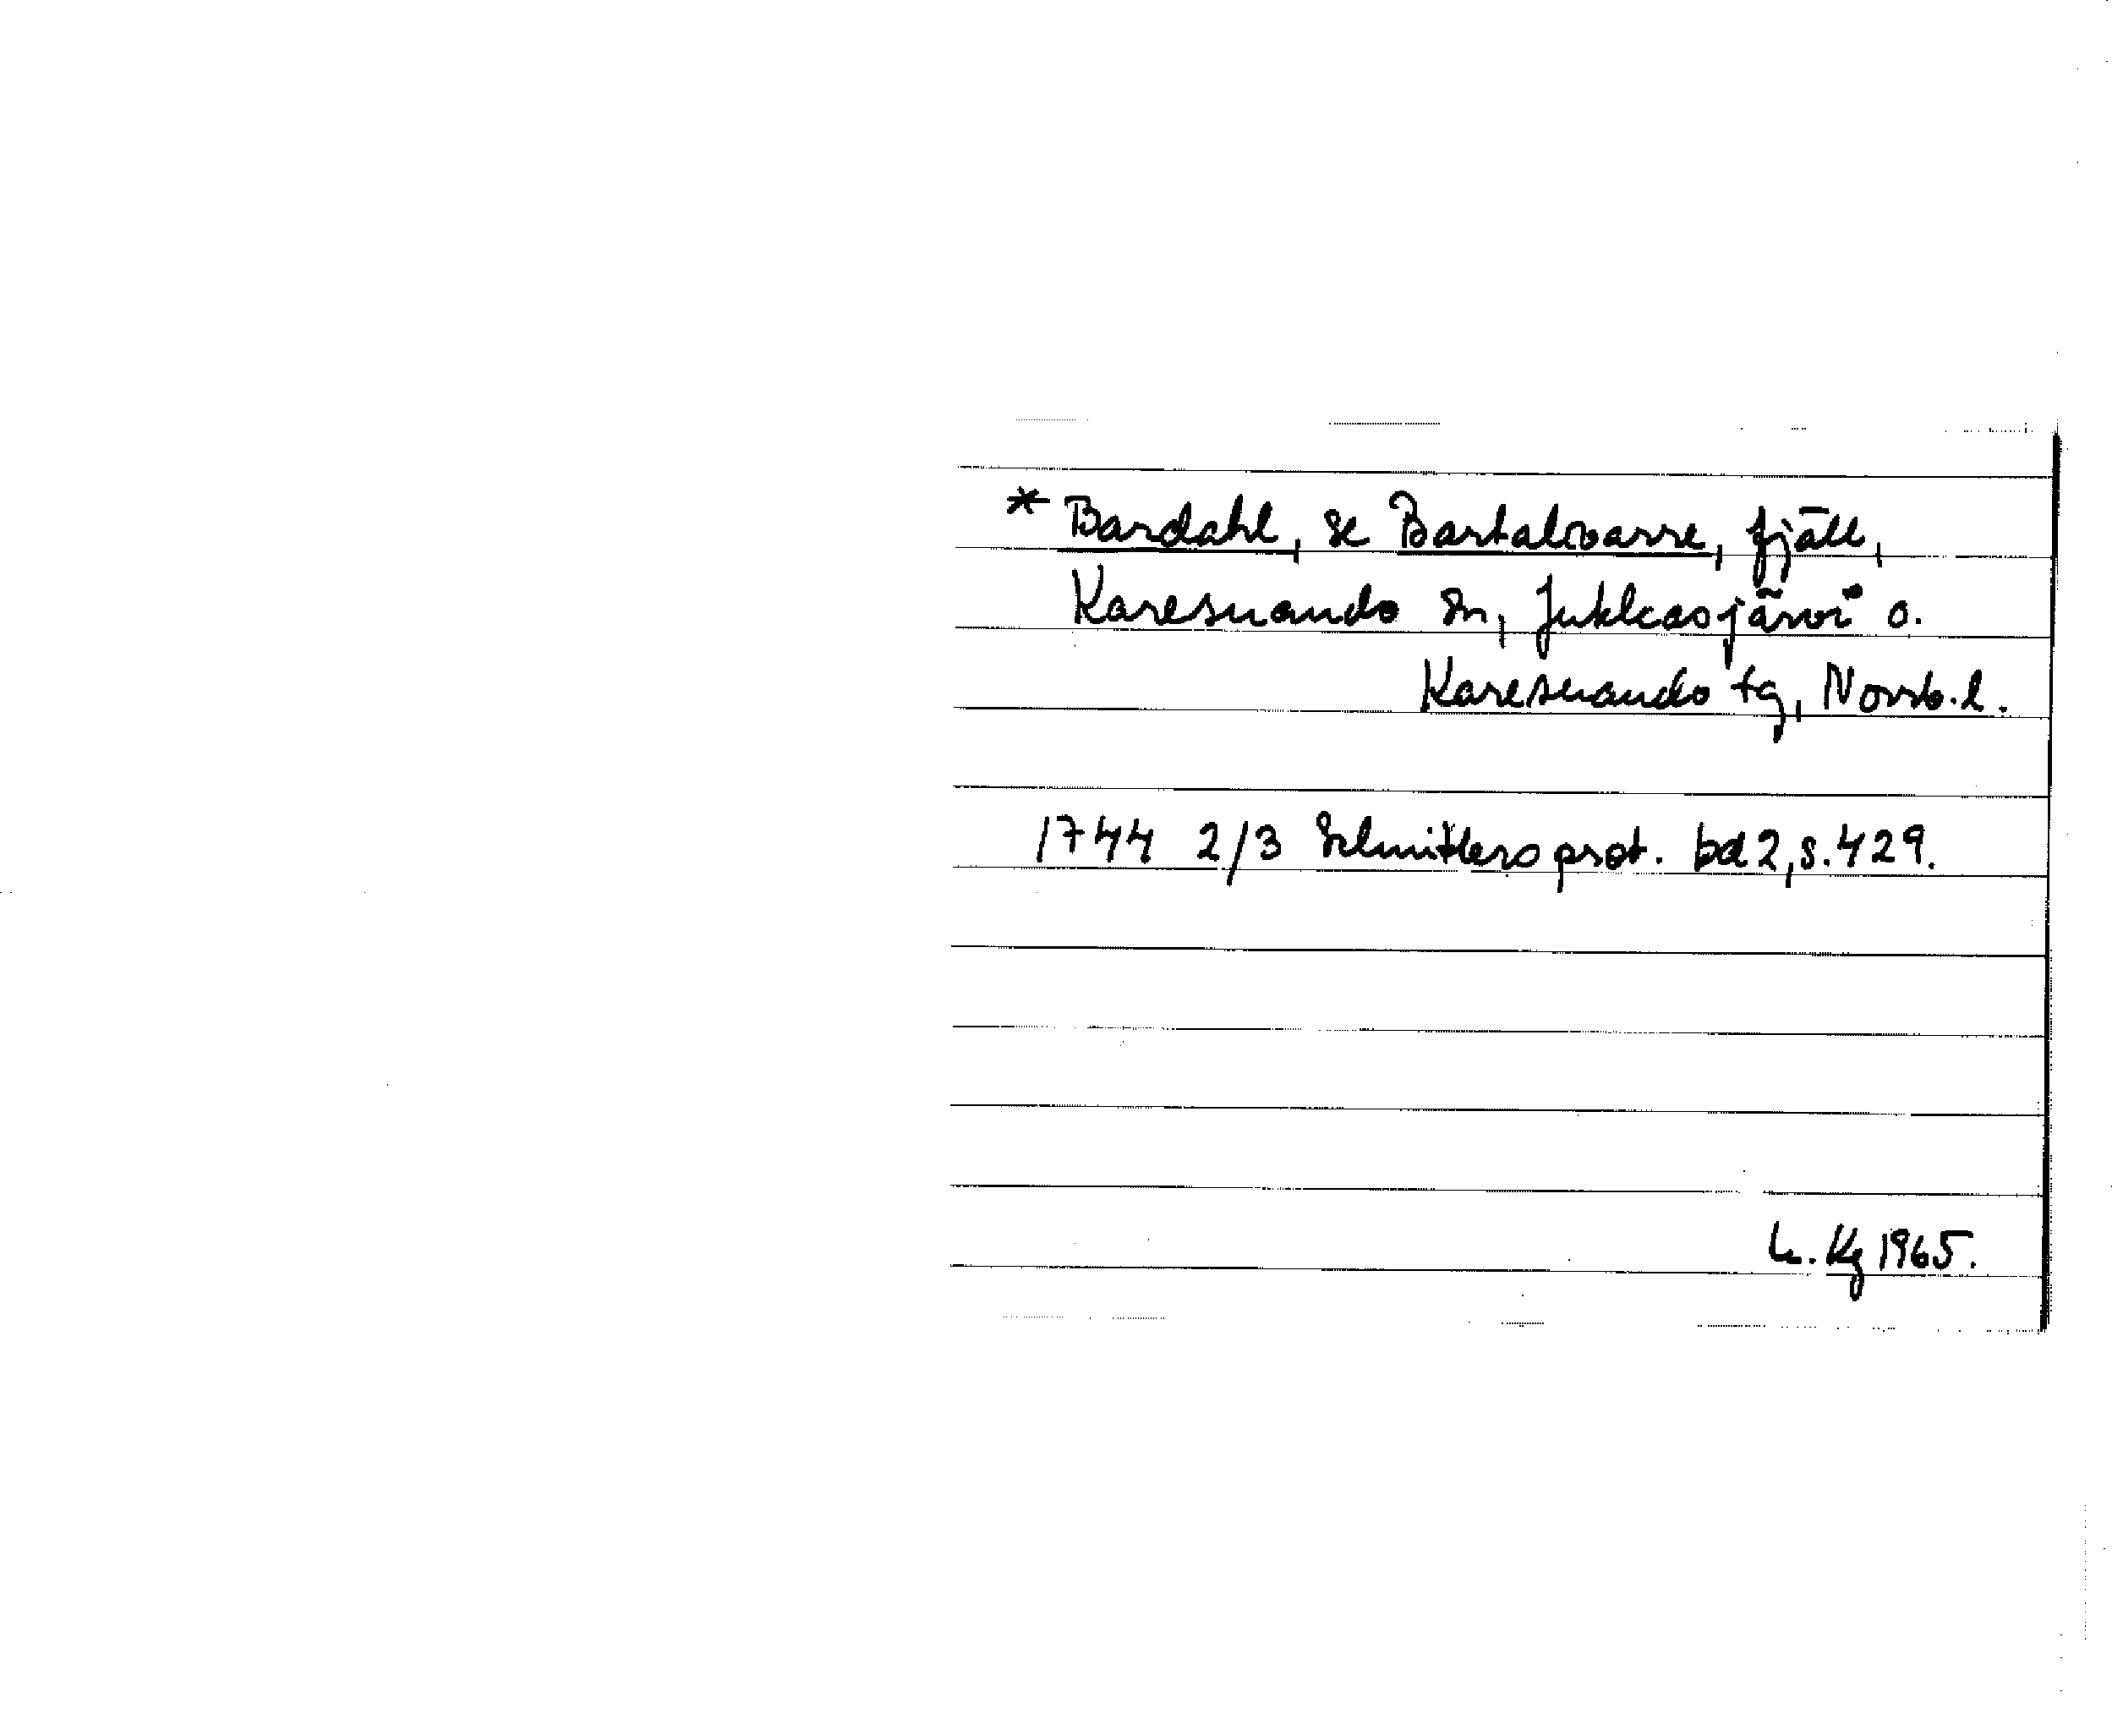 * Bardahl, se Bartalvarre, fjäll,
Karesuando sn, Jukkasjärvi o.
Karesuando tg, Norrb.l.
1744 2/3 Schnitlers prot. bd 2, s. 429.
Kg 1965.